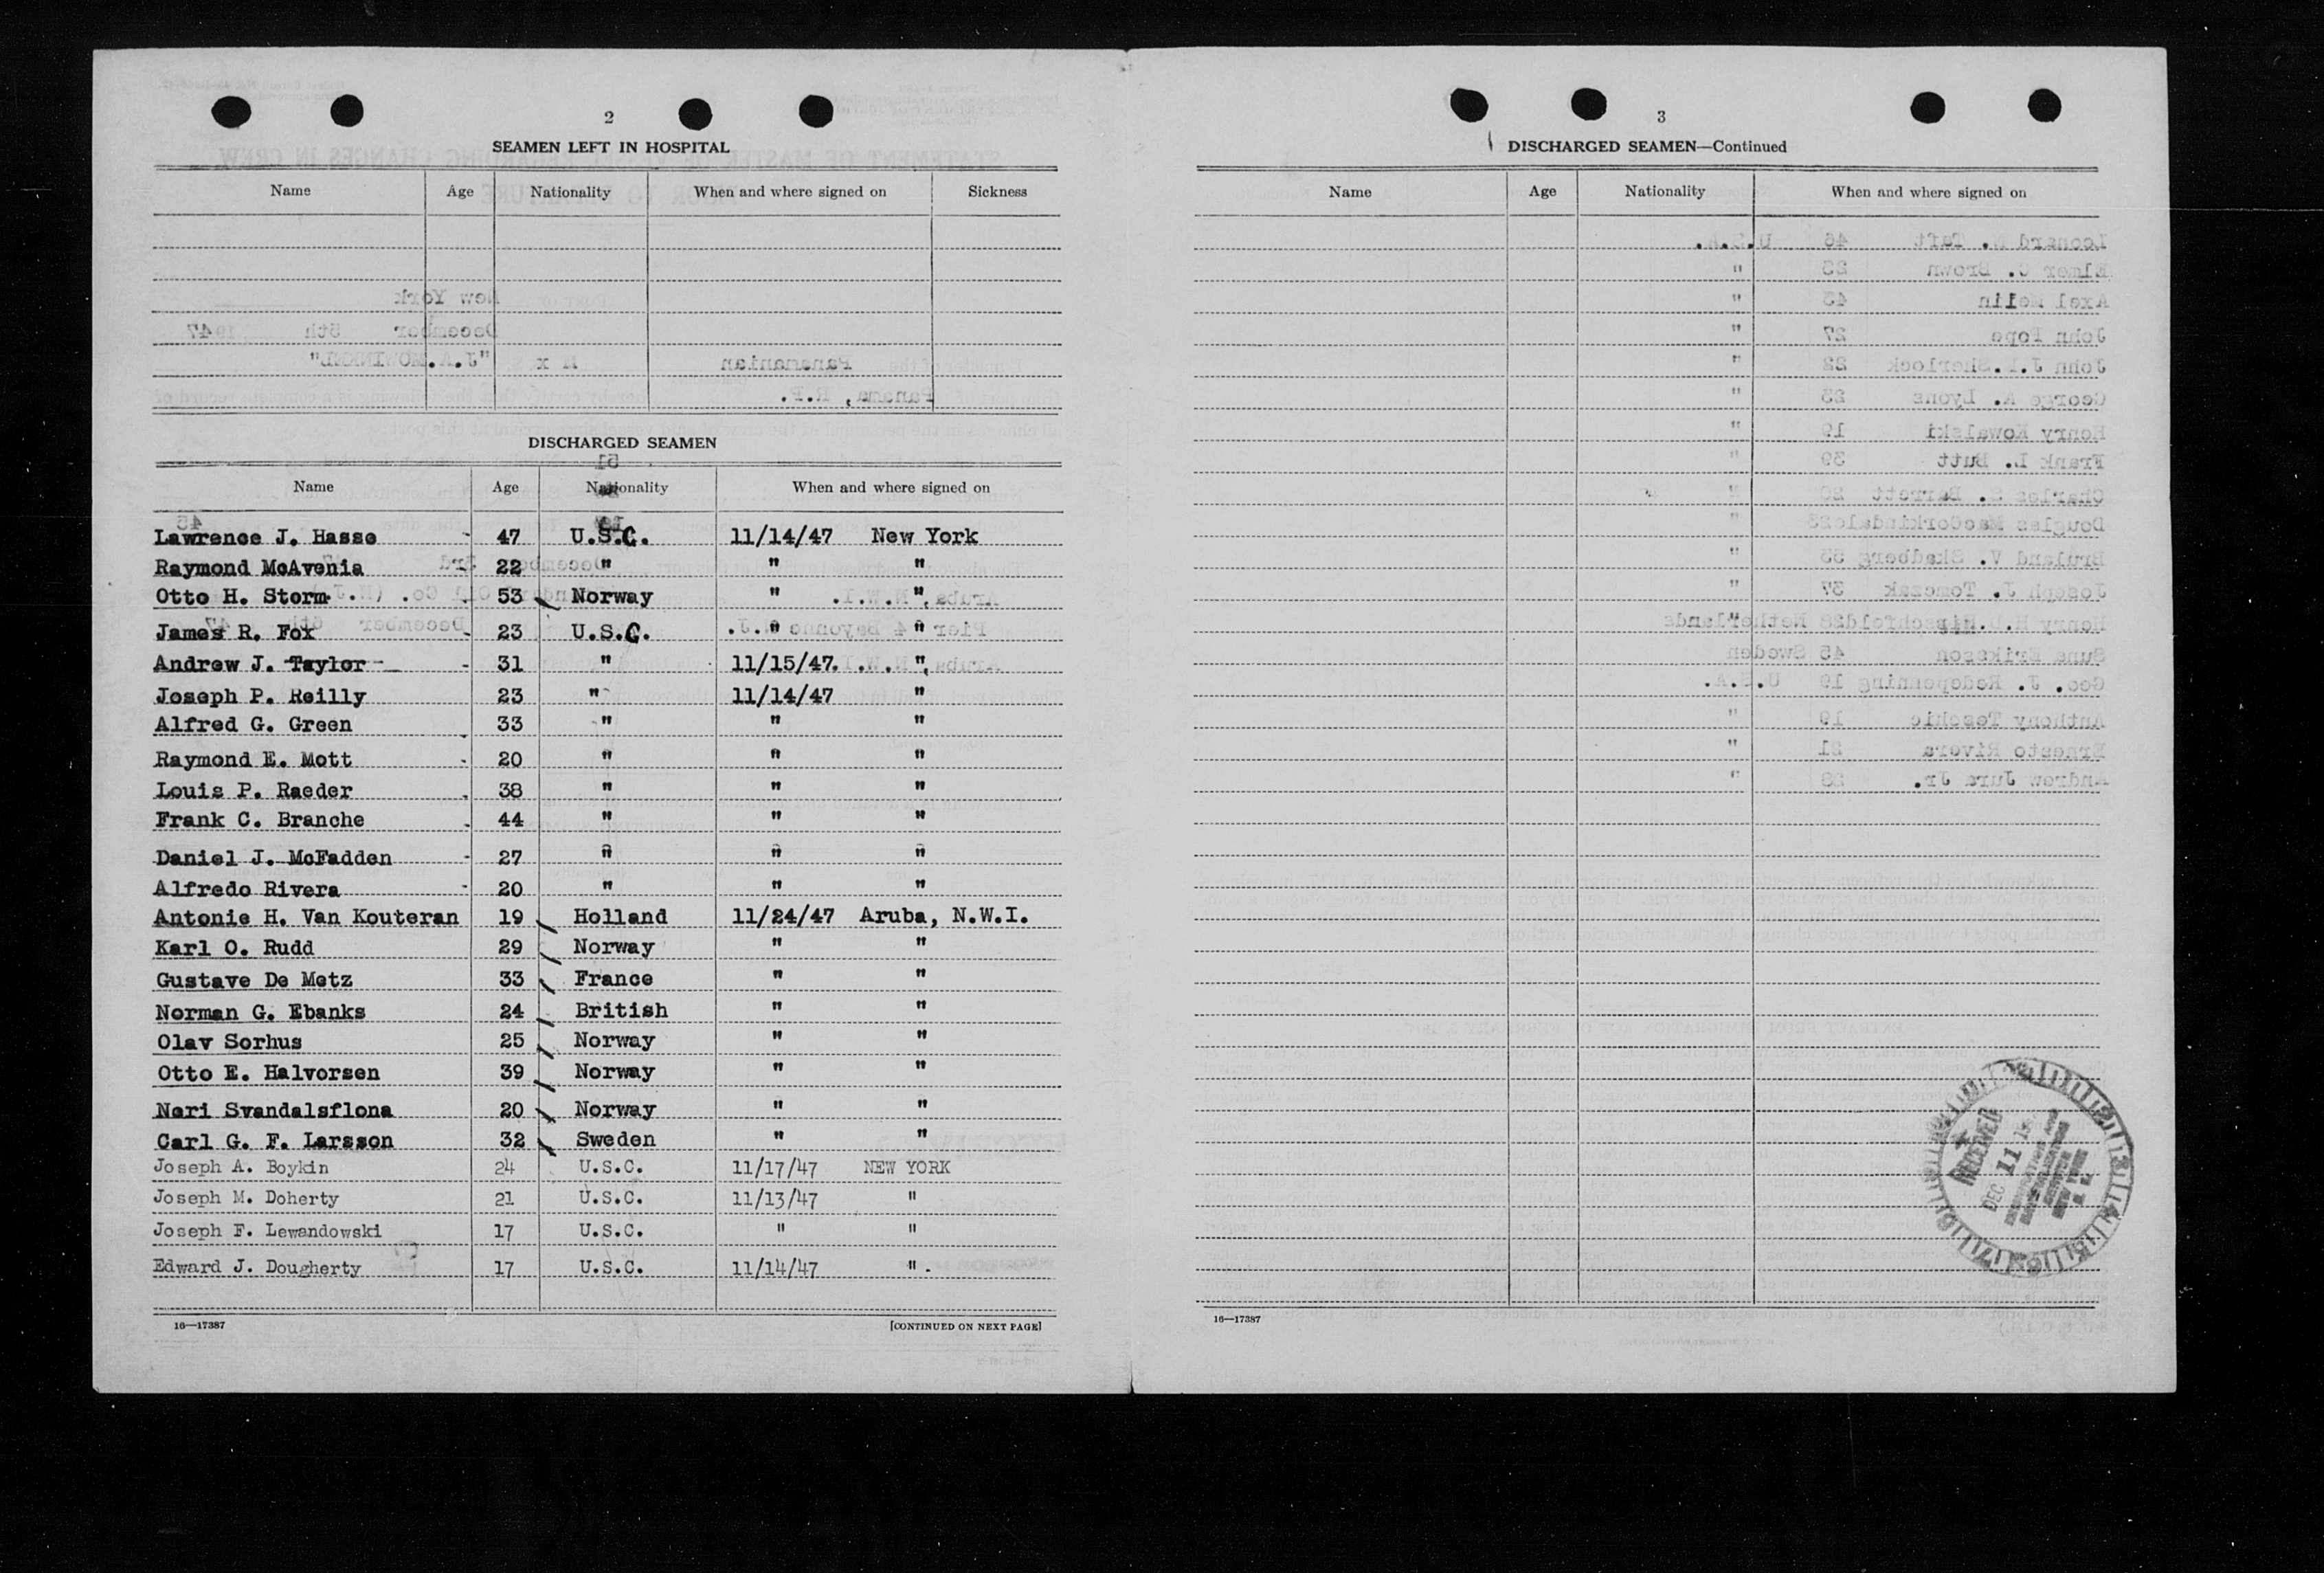 2
SEAMEN LEFT IN HOSPITAL
Name Age Nationality When and where signed on Sickness
DISCHARGED SEAMEN
Name Age Nationality When and where signed on
Lawrence J. Hasse - 47 U.S.C. 11/14/47 New York
Raymond McAvenia 22 " " "
Otto H. Storm 53 Norway " "
James R. Fox - 23 U.S.C. " "
Andrew J. Taylor - 31 " 11/15/47 "
Joseph P. Reilly 23 " 11/14/47 "
Alfred G. Green 33 " " "
Raymond E. Mott - 20 " " "
Louis P. Raeder 38 " " "
Frank C. Branche 44 " " "
Daniel J. McFadden - 27 " " "
Alfredo Rivera - 20 " " "
Antonie H. Van Kouteran 19 Holland 11/24/47 Aruba, N.W.I.
Karl O. Rudd 29 Norway " "
Gustave De Metz 33 France " "
Norman G. Ebanks 24 British " "
Olav Sorhus 25 Norway " "
Otto E. Halvorsen 39 Norway " "
Neri Svandalsflona 20 Norway " "
Carl G. F. Larsson 32 Sweden " "
Joseph A. Boykin 24 U.S.C. 11/17/47 NEW YORK
Joseph M. Doherty 21 U.S.C. 11/13/47 "
Joseph F. Lewandowski 17 U.S.C. " "
Edward J. Dougherty 17 U.S.C. 11/14/47 "
16—17387 [CONTINUED ON NEXT PAGE]
3
DISCHARGED SEAMEN—Continued
Name Age Nationality When and where signed on
RECEIVED
DEC 11
IMMIGRATION AND
NATURALIZATION
SERVICE
NEW YORK
N. Y.
16—17387